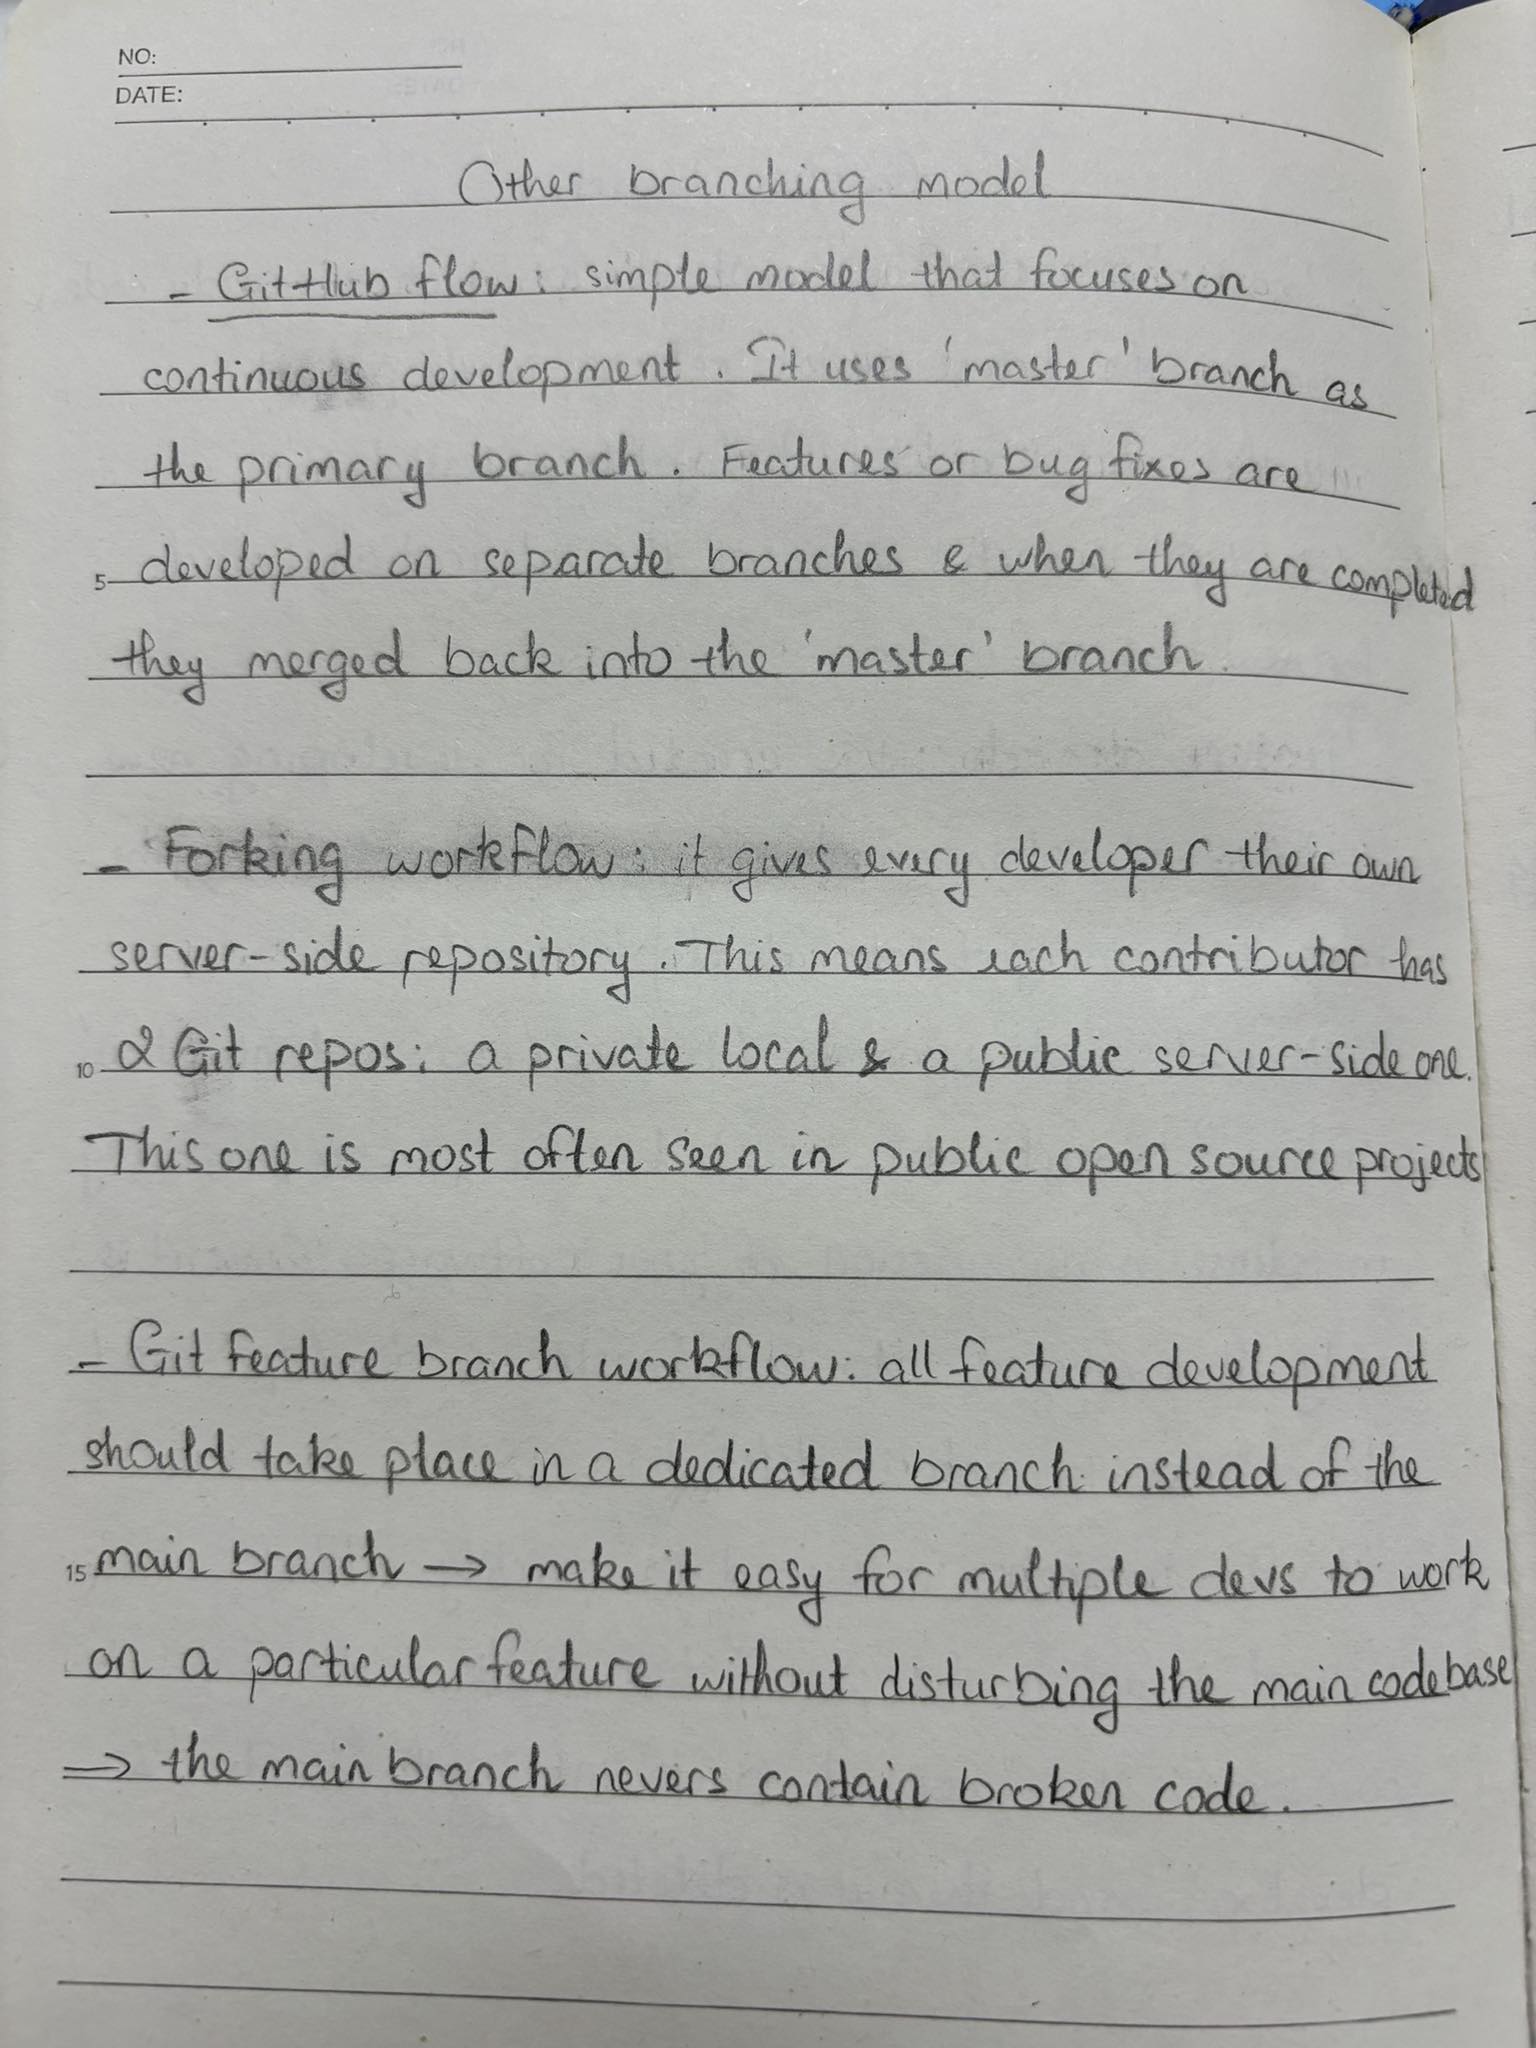 NO:
DATE:
Other branching model
- GitHub flow: simple model that focuses on
continuous development. It uses 'master' branch as
the primary branch. Features or bug fixes are
5 developed on separate branches & when they are completed
they merged back into the 'master' branch.
- Forking workflow: it gives every developer their own
server-side repository. This means each contributor has
10 2 Git repos: a private local & a public server-side one.
This one is most often seen in public open source projects
- Git feature branch workflow: all feature development
should take place in a dedicated branch instead of the
15 main branch → make it easy for multiple devs to work
on a particular feature without disturbing the main codebase
⇒ the main branch nevers contain broken code.